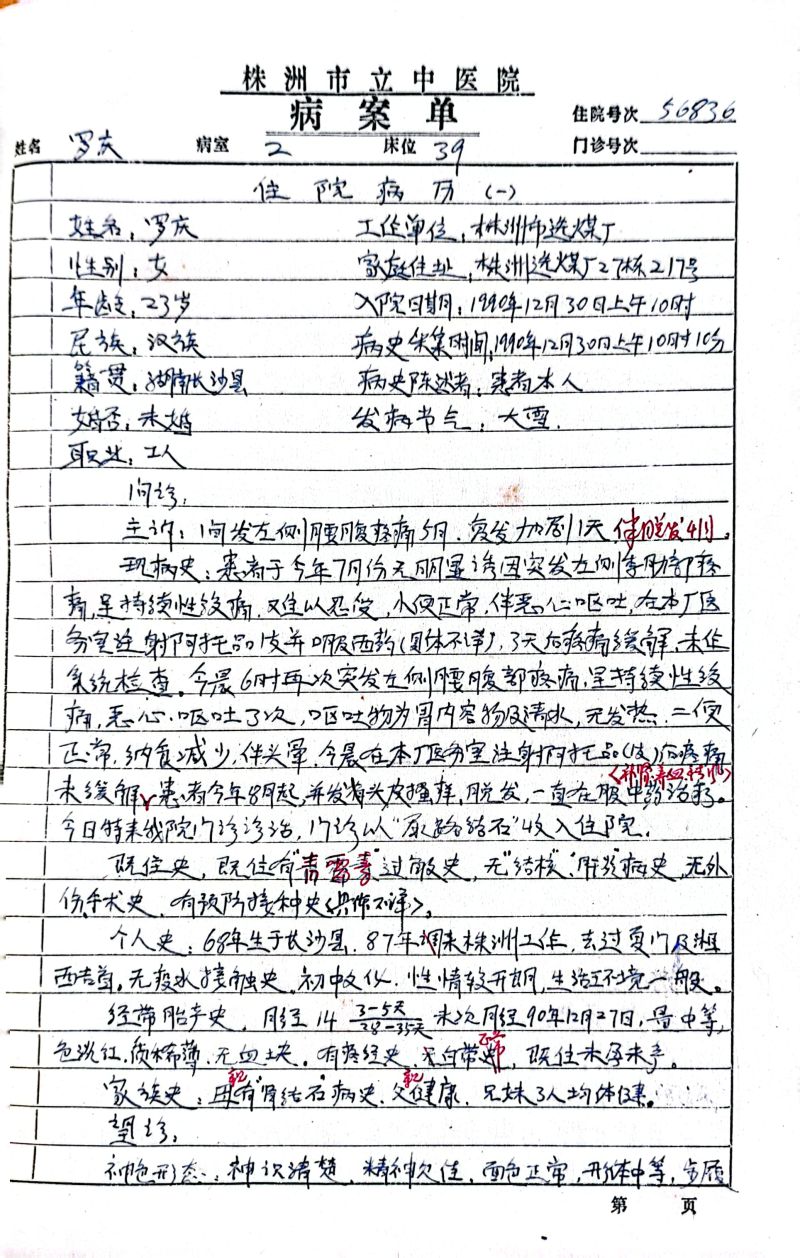 株洲市立中医院
病案单
住院号次 56836
姓名 罗庆 病室 2 床位 39 门诊号次
住院病历(一)
姓名:罗庆 工作单位:株洲市选煤厂
性别:女 家庭住址:株洲选煤厂27栋217号
年龄:23岁 入院日期:1990年12月30日上午10时
民族:汉族 病史采集时间:1990年12月30日上午10时10分
籍贯:湖南长沙县 病史陈述者:患者本人
婚否:未婚 发病节气:大雪.
职业:工人
问诊:
主诉:间发左侧腰腹疼痛5月.突发加剧1天 伴脱发4月。
现病史:患者于今年7月份无明显诱因突发左侧季肋部疼
痛,呈持续性绞痛.难以忍受,小便正常,伴恶心呕吐,在本厂医
务室注射阿托品后并口服西药(具体不详),3天后疼痛缓解,未作
系统检查。今晨6时再次突发左侧腰腹部疼痛,呈持续性绞
痛,恶心.呕吐3次,呕吐物为胃内容物及清水,无发热.二便
正常,纳食减少,伴头晕,今晨在本厂医务室注射阿托品(1支)后疼痛
未缓解,患者今年8月起,并发有头皮搔痒,脱发,一直在服中药治疗。
今日特来我院门诊诊治,门诊以"尿路结石"收入住院.
既往史:既往有"青霉素"过敏史,无"结核"."肝炎"病史,无外
伤手术史.有预防接种史(具体不详)。
个人史:68年生于长沙县.87年调来株洲工作,去过厦门及湘
西吉首。无疫水接触史.初中文化.性情较开朗,生活环境一般。
经带胎产史:月经14 3-5天/28-35天 末次月经90年12月27日,量中等,
色淡红,质稀薄.无血块.有痛经史.白带正常,既往未孕未产。
家族史:母亲有"肾结石"病史.父亲健康.兄妹3人均体健。
望诊:
神色形态:神识清楚.精神欠佳,面色正常,形体中等,步履
第 页